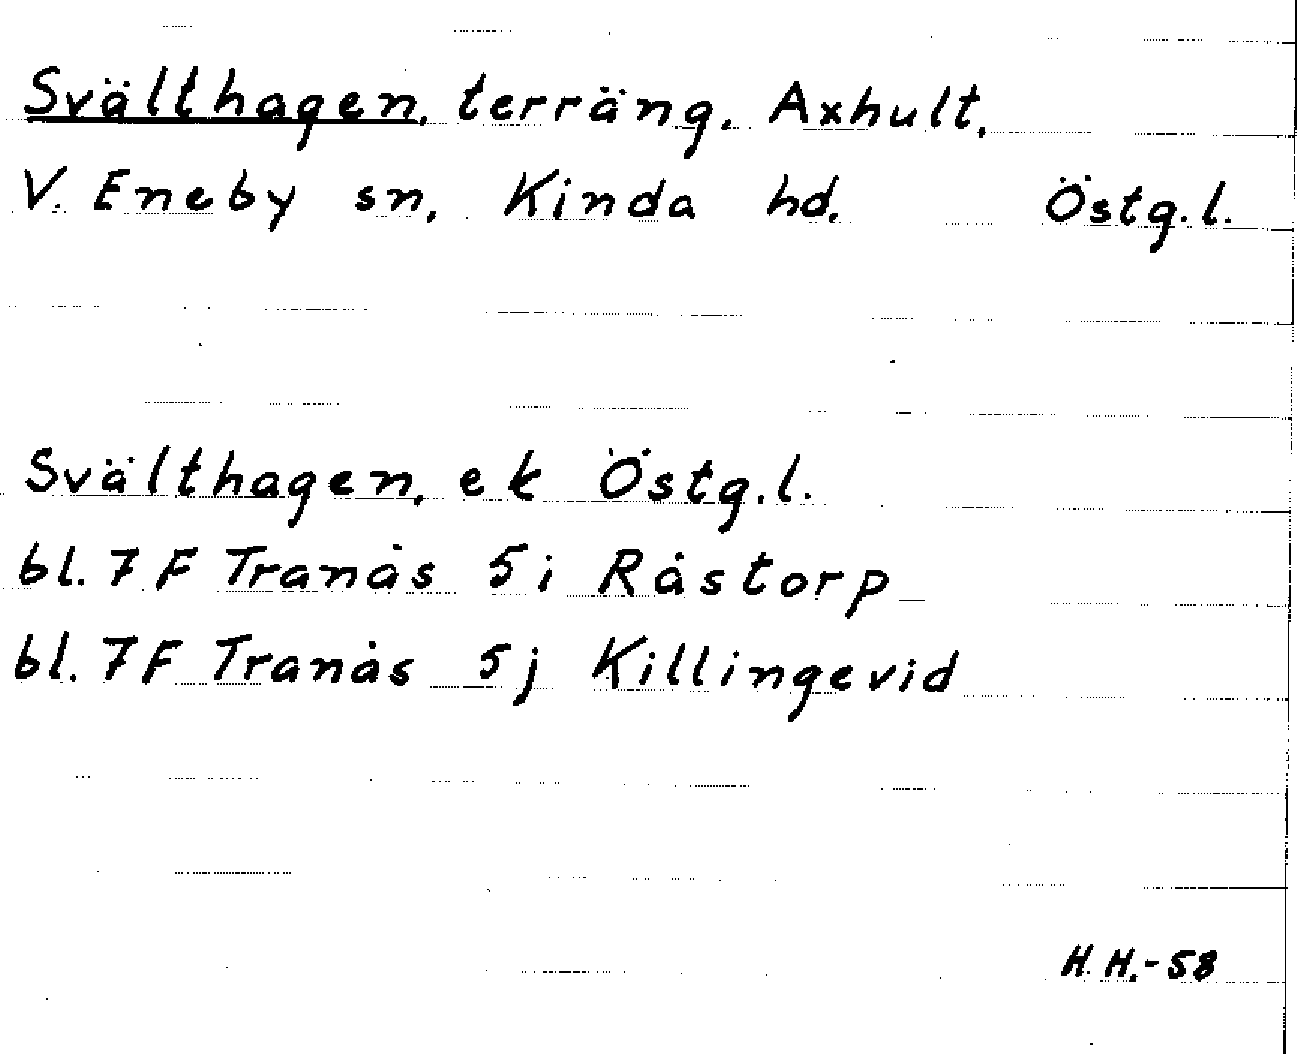 Svälthagen, terräng. Axhult,
V. Eneby sn, Kinda hd. Östg.l.
Svälthagen, ek Östg.l.
bl. 7F Tranås 5i Råstorp
bl. 7F Tranås 5j Killingevid
H.H.-58